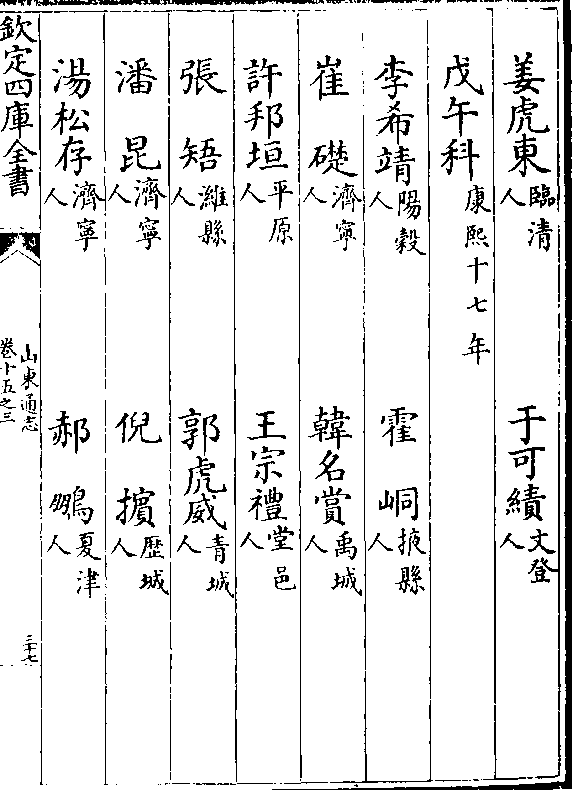 姜虎東臨清人　于可績文登人
戊午科康熙十七年
李希靖陽穀人　霍峒掖縣人
崔礎濟寧人　韓名賞禹城人
許邦垣平原人　王宗禮堂邑人
張㛃濰縣人　郭虎威青城人
潘昆濟寧人　倪擯歷城人
湯松存濟寧人　郝鵬夏津人
欽定四庫全書
山東通志
卷十五之三
三十七